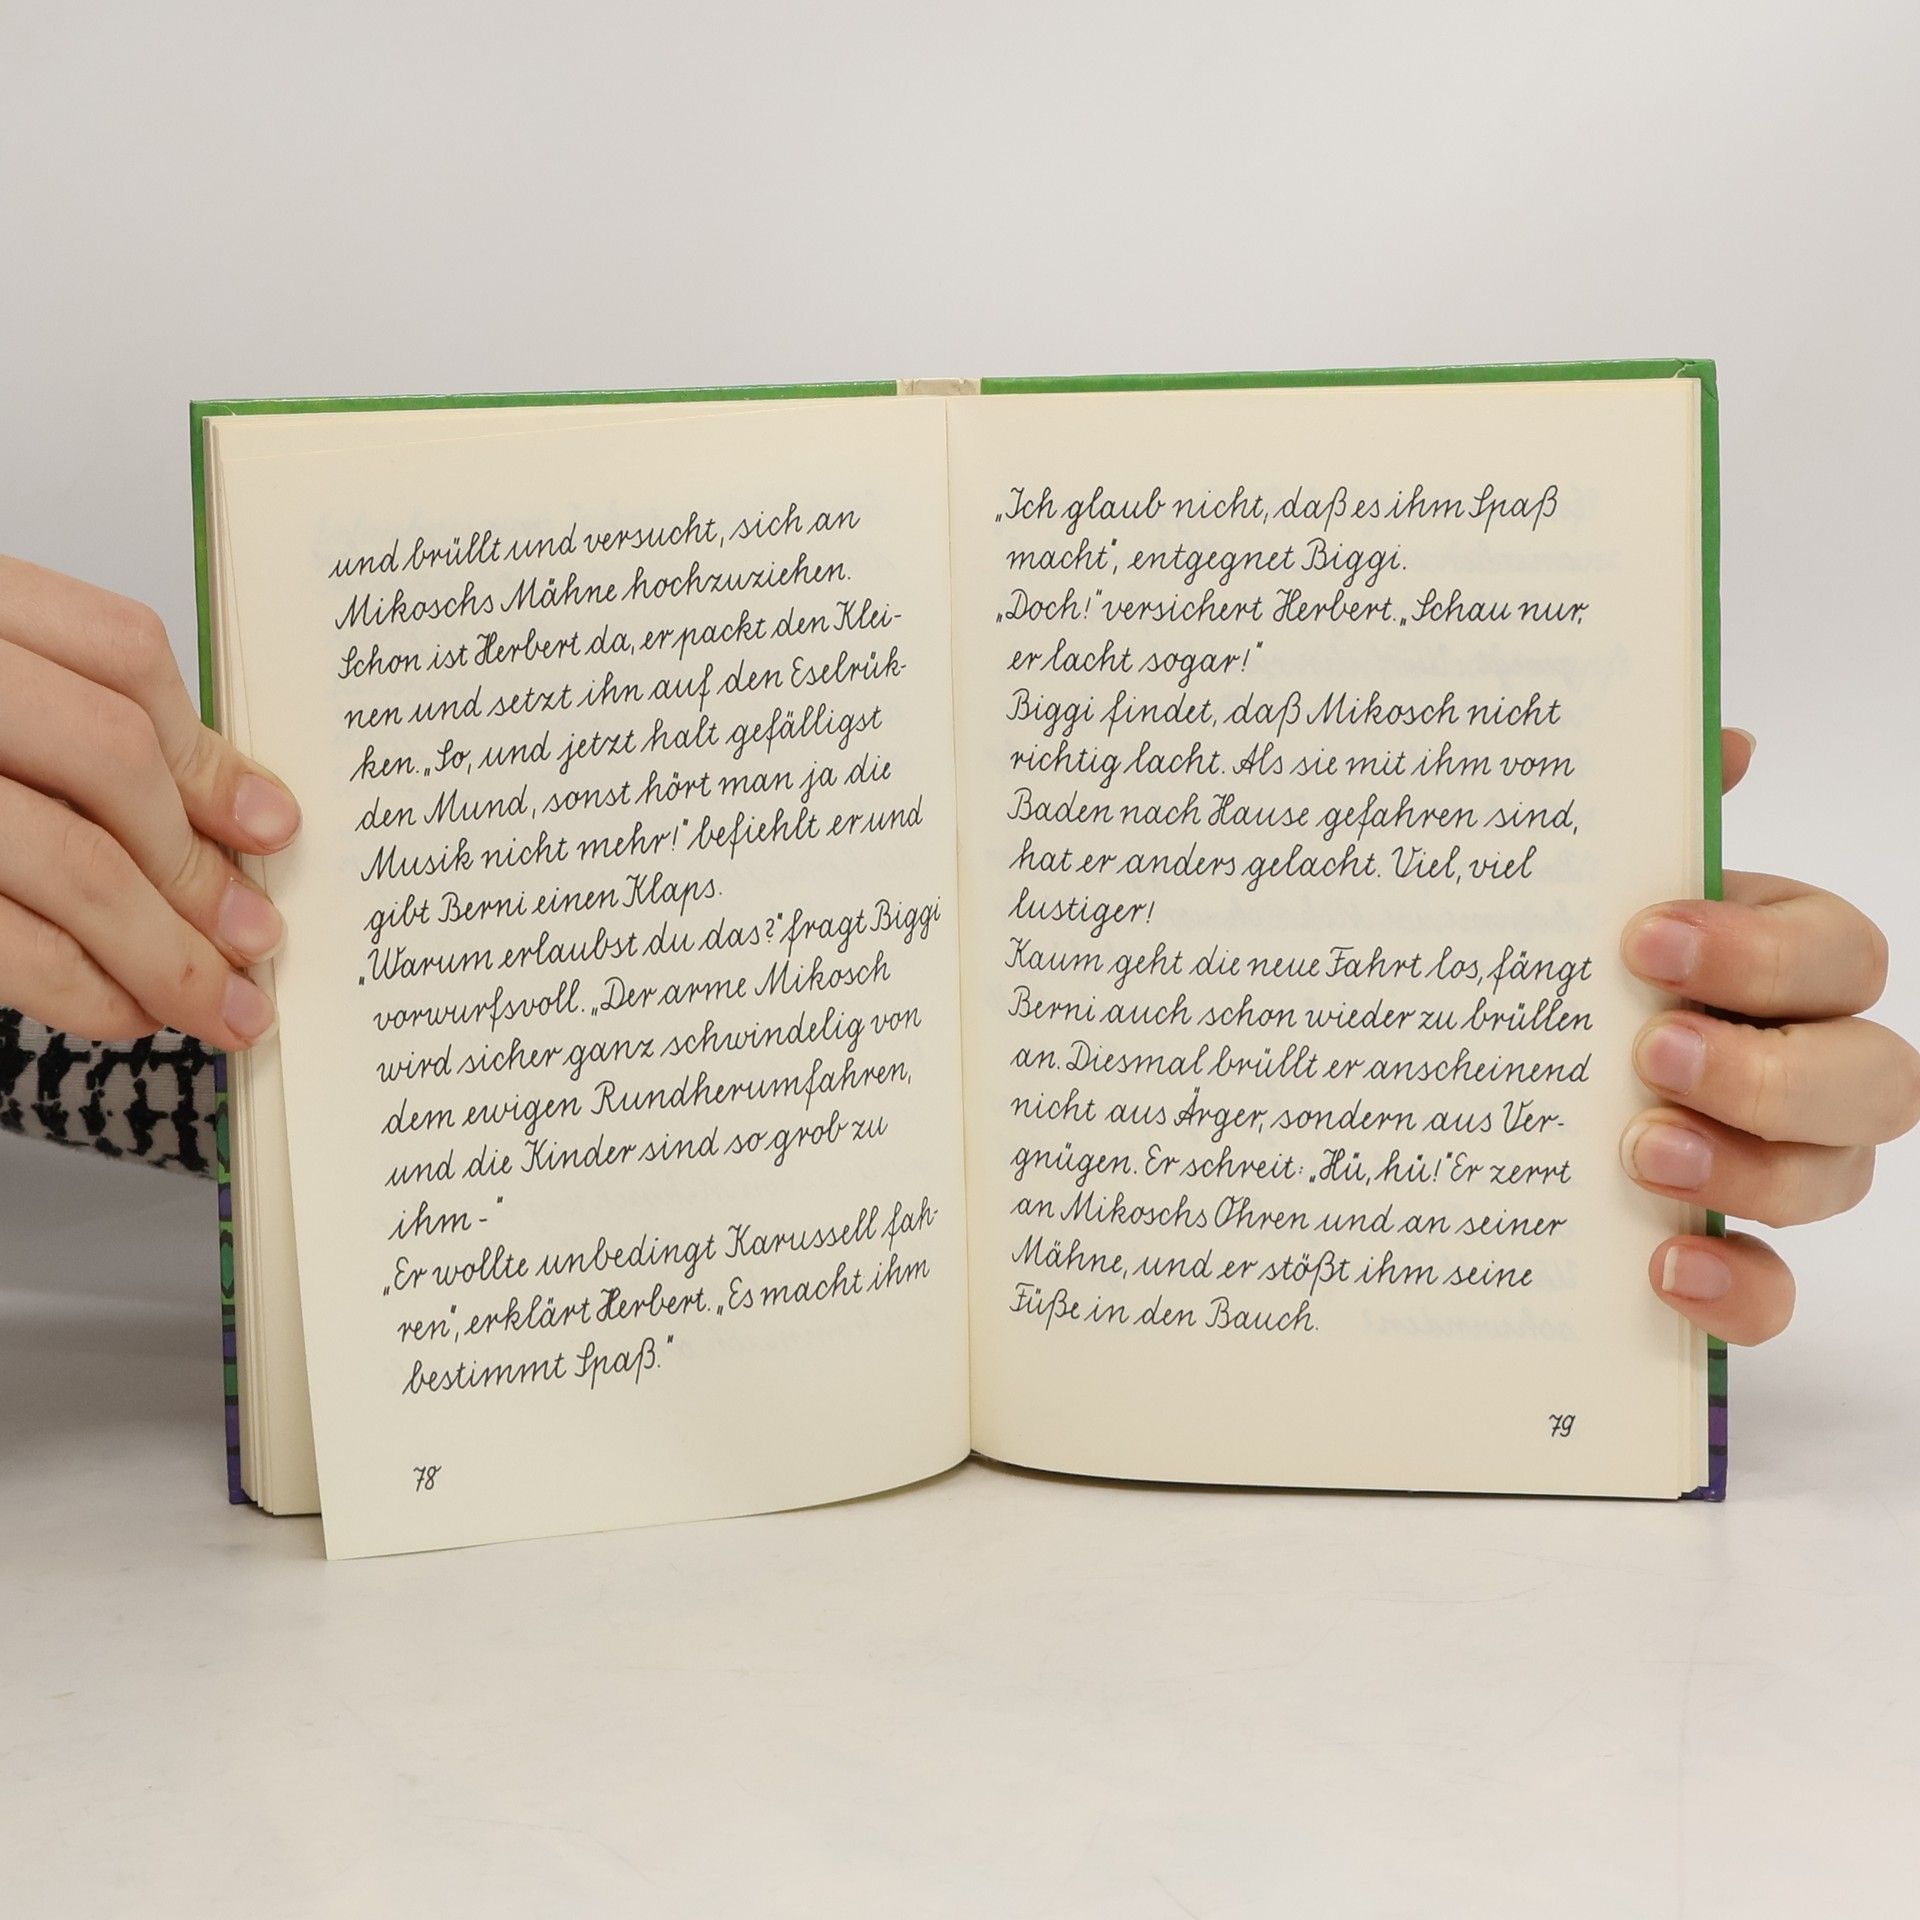 und brüllt und versucht, sich an
Mikoschs Mähne hochzuziehen.
Schon ist Herbert da, er packt den Klei-
nen und setzt ihn auf den Eselrük-
ken. „So, und jetzt halt gefälligst
den Mund, sonst hört man ja die
Musik nicht mehr!" befiehlt er und
gibt Berni einen Klaps.
„Warum erlaubst du das?" fragt Biggi
vorwurfsvoll. „Der arme Mikosch
wird sicher ganz schwindelig von
dem ewigen Rundherumfahren,
und die Kinder sind so grob zu
ihm-"
„Er wollte unbedingt Karussell fah-
ren", erklärt Herbert. „Es macht ihm
bestimmt Spaß."
78
„Ich glaub nicht, daß es ihm Spaß
macht", entgegnet Biggi.
„Doch!" versichert Herbert. „Schau nur,
er lacht sogar!"
Biggi findet, daß Mikosch nicht
richtig lacht. Als sie mit ihm vom
Baden nach Hause gefahren sind,
hat er anders gelacht. Viel, viel
lustiger!
Kaum geht die neue Fahrt los, fängt
Berni auch schon wieder zu brüllen
an. Diesmal brüllt er anscheinend
nicht aus Ärger, sondern aus Ver-
gnügen. Er schreit: „Hü, hü!" Er zerrt
an Mikoschs Ohren und an seiner
Mähne, und er stößt ihm seine
Füße in den Bauch.
79